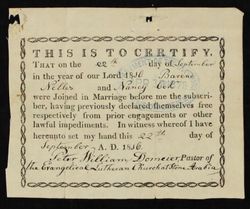 THIS IS TO CERTIFY,
THAT on the 22th day of September
in the year of our Lord 1836 Barent
Nelles and Nancy Cok
were Joined in Marriage before me the subscri-
ber, having previously declared themselves free
respectively from prior engagements or other
lawful impediments. In witness whereof I have
hereunto set my hand this 22th day of
September A. D. 1836.
Peter William Domeier, Pastor of
the Evangelical Lutheran Church at Stone Arabia